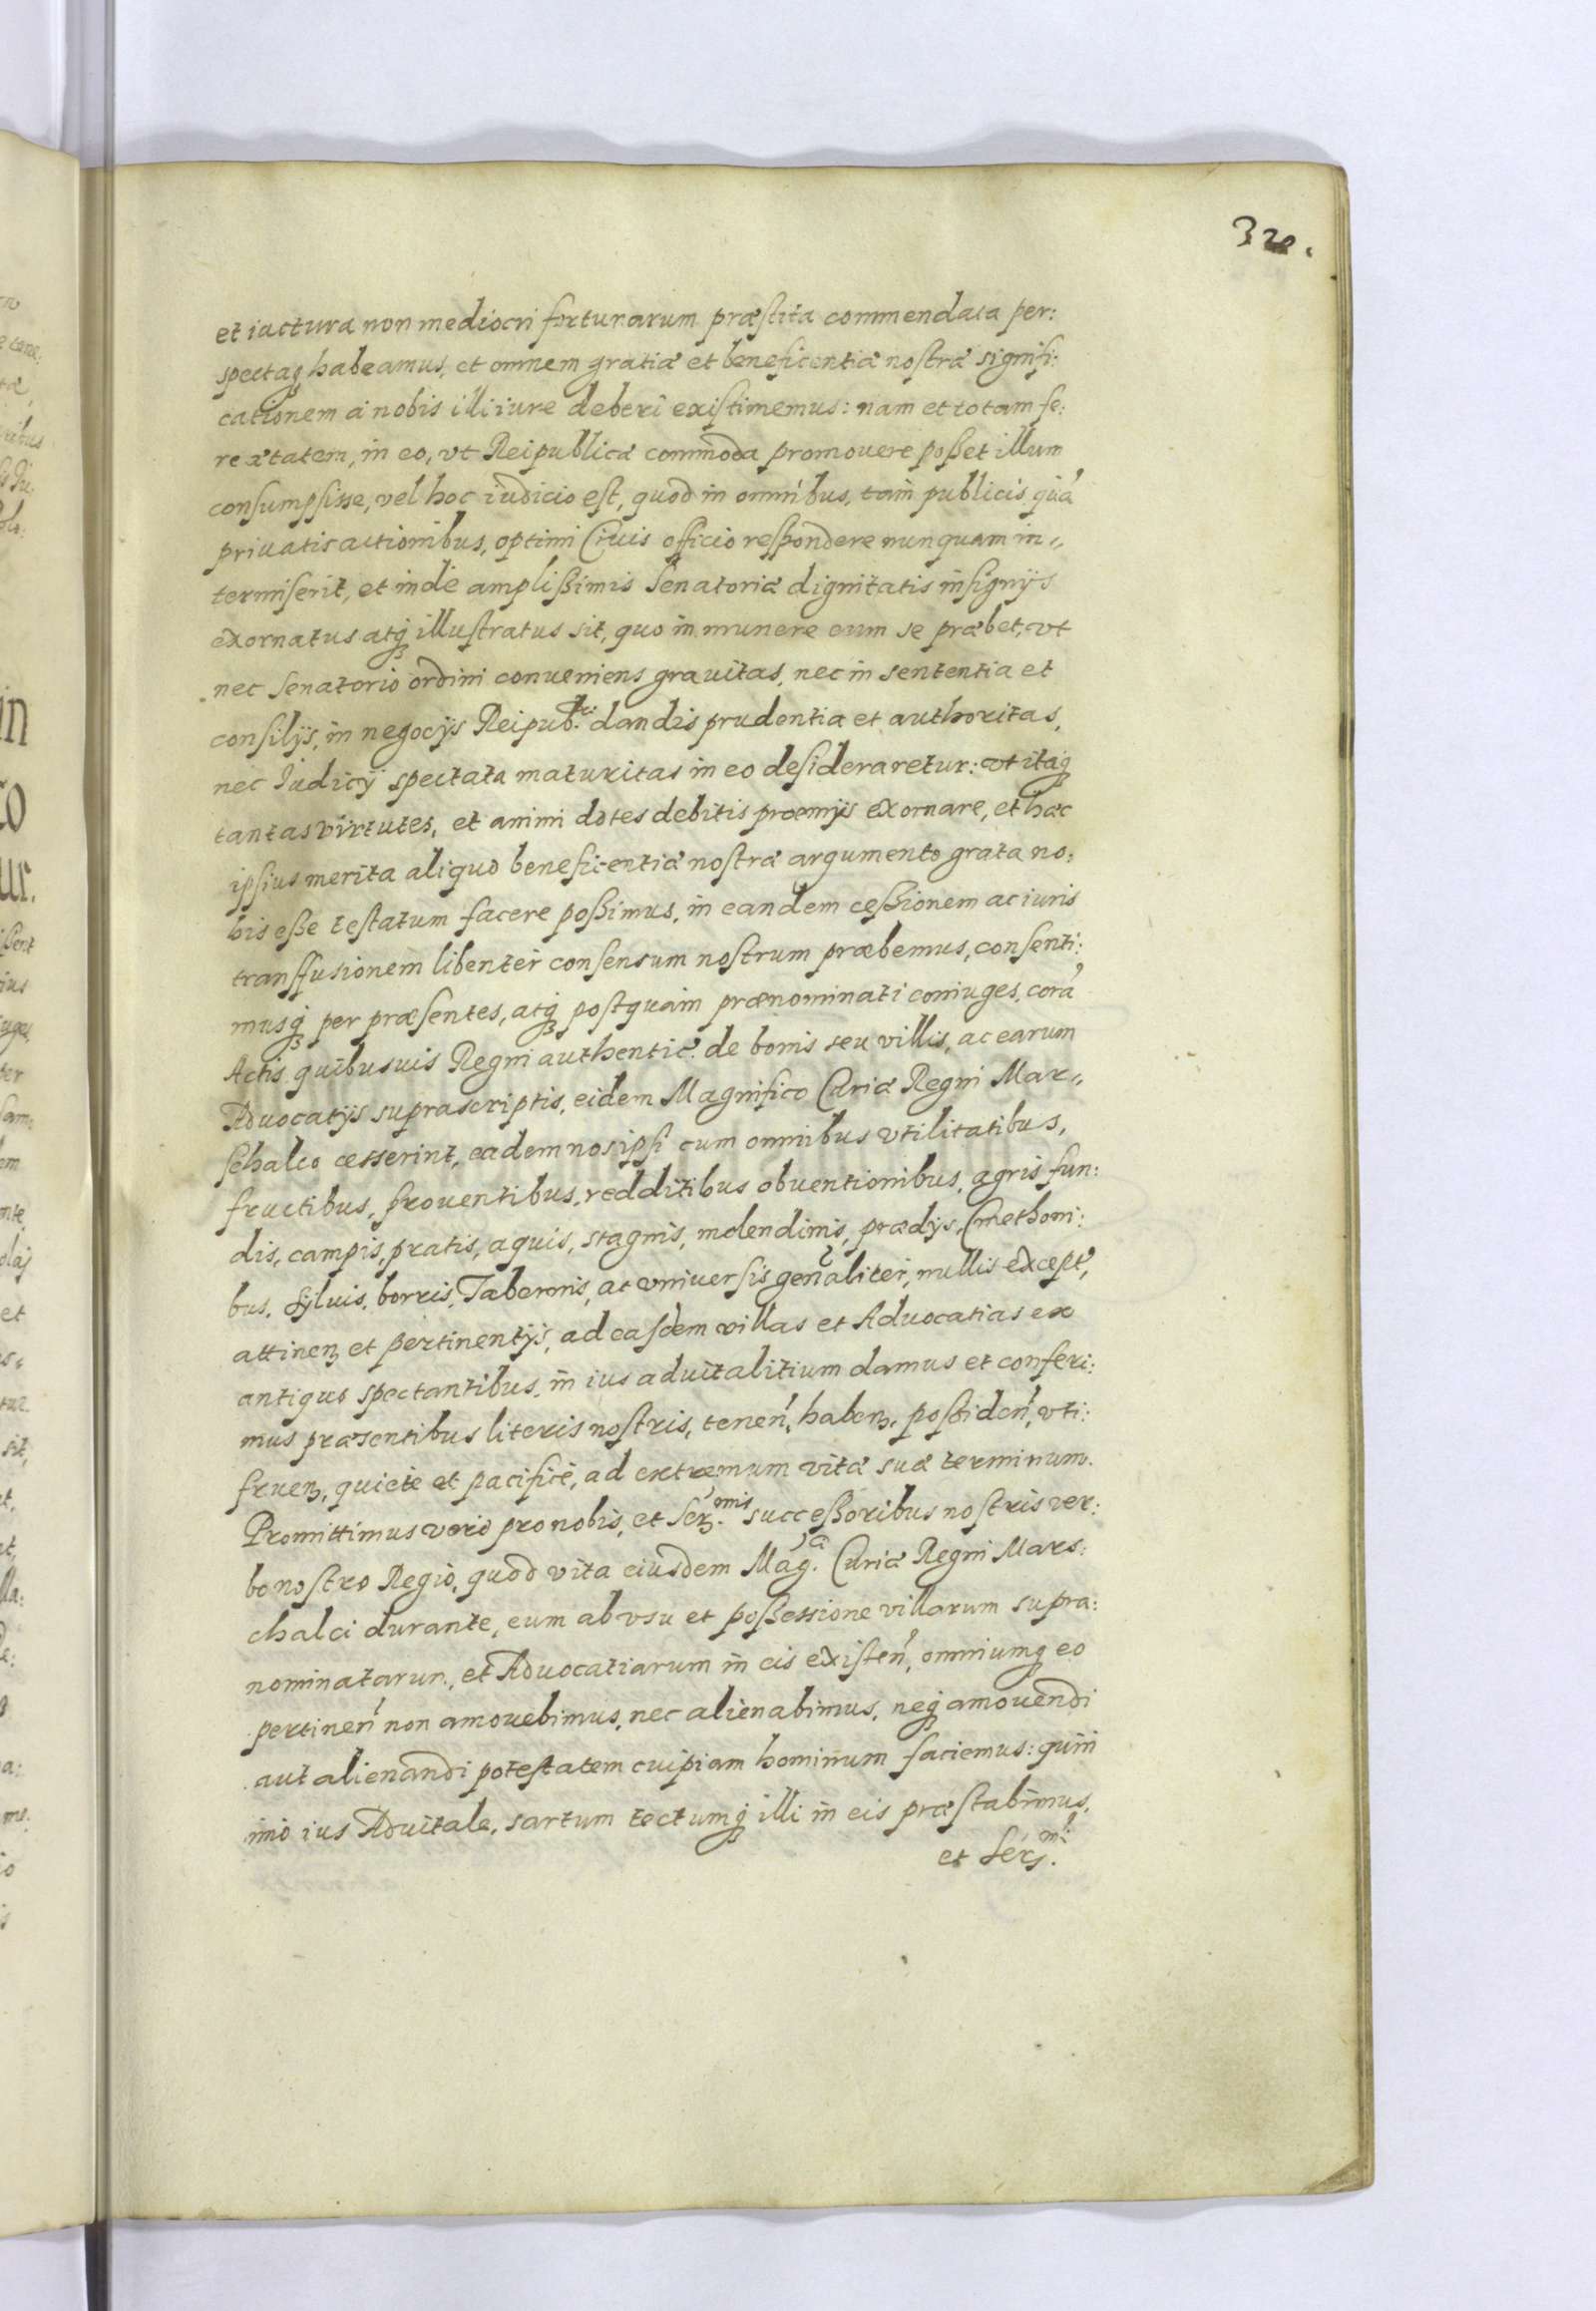 320.
et iactura non mediocri fortunarum præstita commendata per:
spectaq; habeamus, et omnem gratiæ et beneficentiæ nostræ signifi:
cationem a nobis illi iure deberi existimemus: nam et totam fe:
re ætatem, in eo, vt Reipublicæ commoda promouere posset illum
consumpsisse, vel hoc iudicio est, quod in omnibus, tam publicis quã
priuatis actionibus, optimi Ciuis officio respondere nunquam in„
termiserit, et inde amplissimis Senatoriæ dignitatis insignijs
exornatus atq; illustratus sit, quo in munere eum se præbet, vt
nec Senatorio ordini conueniens grauitas, nec in sententia et
consilijs, in negocijs Reipub.cæ dandis prudentia et authoritas,
nec Iudicij spectata maturitas in eo desideraretur: vt itaq;
tantas virtutes, et animi dotes debitis præmijs exornare, et hæc
ipsius merita aliquo beneficentiæ nostræ argumento grata no:
bis esse testatum facere possimus, in eandem cessionem ac iuris
transfusionem libenter consensum nostrum præbemus, consenti:
musq; per præsentes, atq; postquam prænominati coniuges, corã
Actis quibusuis Regni authentic: de bonis seu villis, ac earum
Aduocatijs suprascriptis, eidem Magnifico Curiæ Regni Mar„
schalco cesserint, eadem nos ipsi cum omnibus vtilitatibus,
fructibus, prouentibus, redditibus obuentionibus, agris fun:
dis, campis, pratis, aquis, stagnis, molendinis, prædijs, Cmethoni:
bus, syluis, borris, Tabernis, ac vniuersis gen̄aliter, nullis except',
attinen; et pertinentijs, ad easdem villas et Aduocatias ex
antiquo spectantibus, in ius aduitalitium damus et conferi:
mus præsentibus literis nostris, tenen', haben;, possiden', vti:
fruen;, quiete et pacifice, ad extremum vitæ suæ terminum.
Promittimus vero pro nobis, et Ser.mis successoribus nostris ver:
bo nostro Regio, quod vita eiusdem Mag.ci Curiæ Regni Mars:
chalci durante, eum ab vsu et possessione villarum supra:
nominatarum, et Aduocatiarum in eis existen', omniumq; eo
pertinen' non amouebimus, nec alienabimus, neq; amouendi
aut alienandi potestatem cuipiam hominum faciemus: quin
imo ius Aduitale, sartum tectumq; illi in eis præstabimus,
et Ser.mi